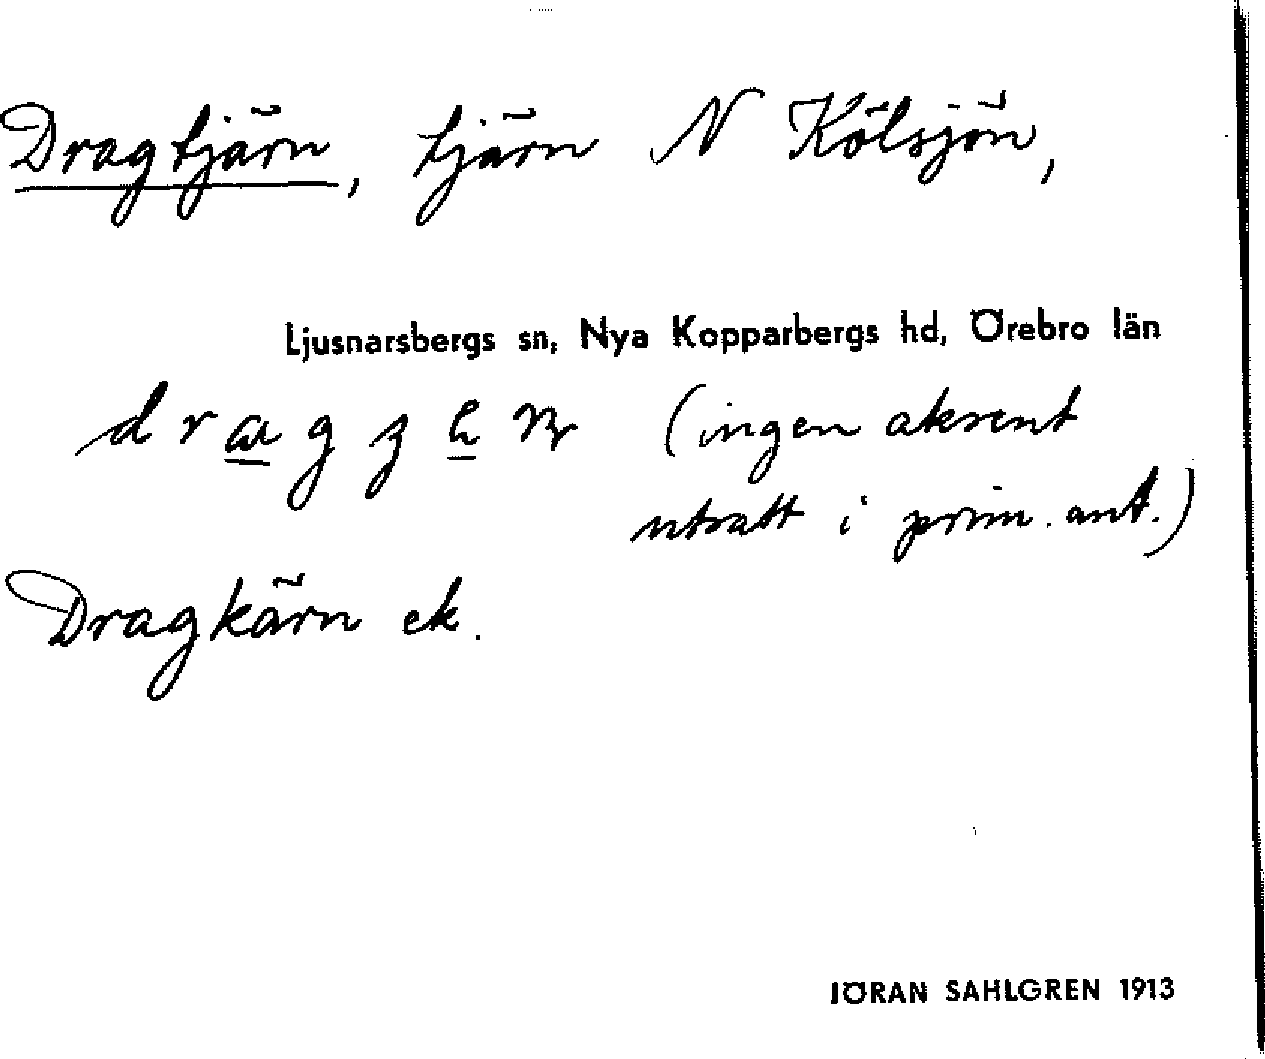 Dragtjärn, tjärn N Kölsjön,
Ljusnarsbergs sn, Nya Kopparbergs hd, Örebro län
(ingen aksent
utsatt i prim. ant.)
Dragkärn ek.
JÖRAN SAHLGREN 1913